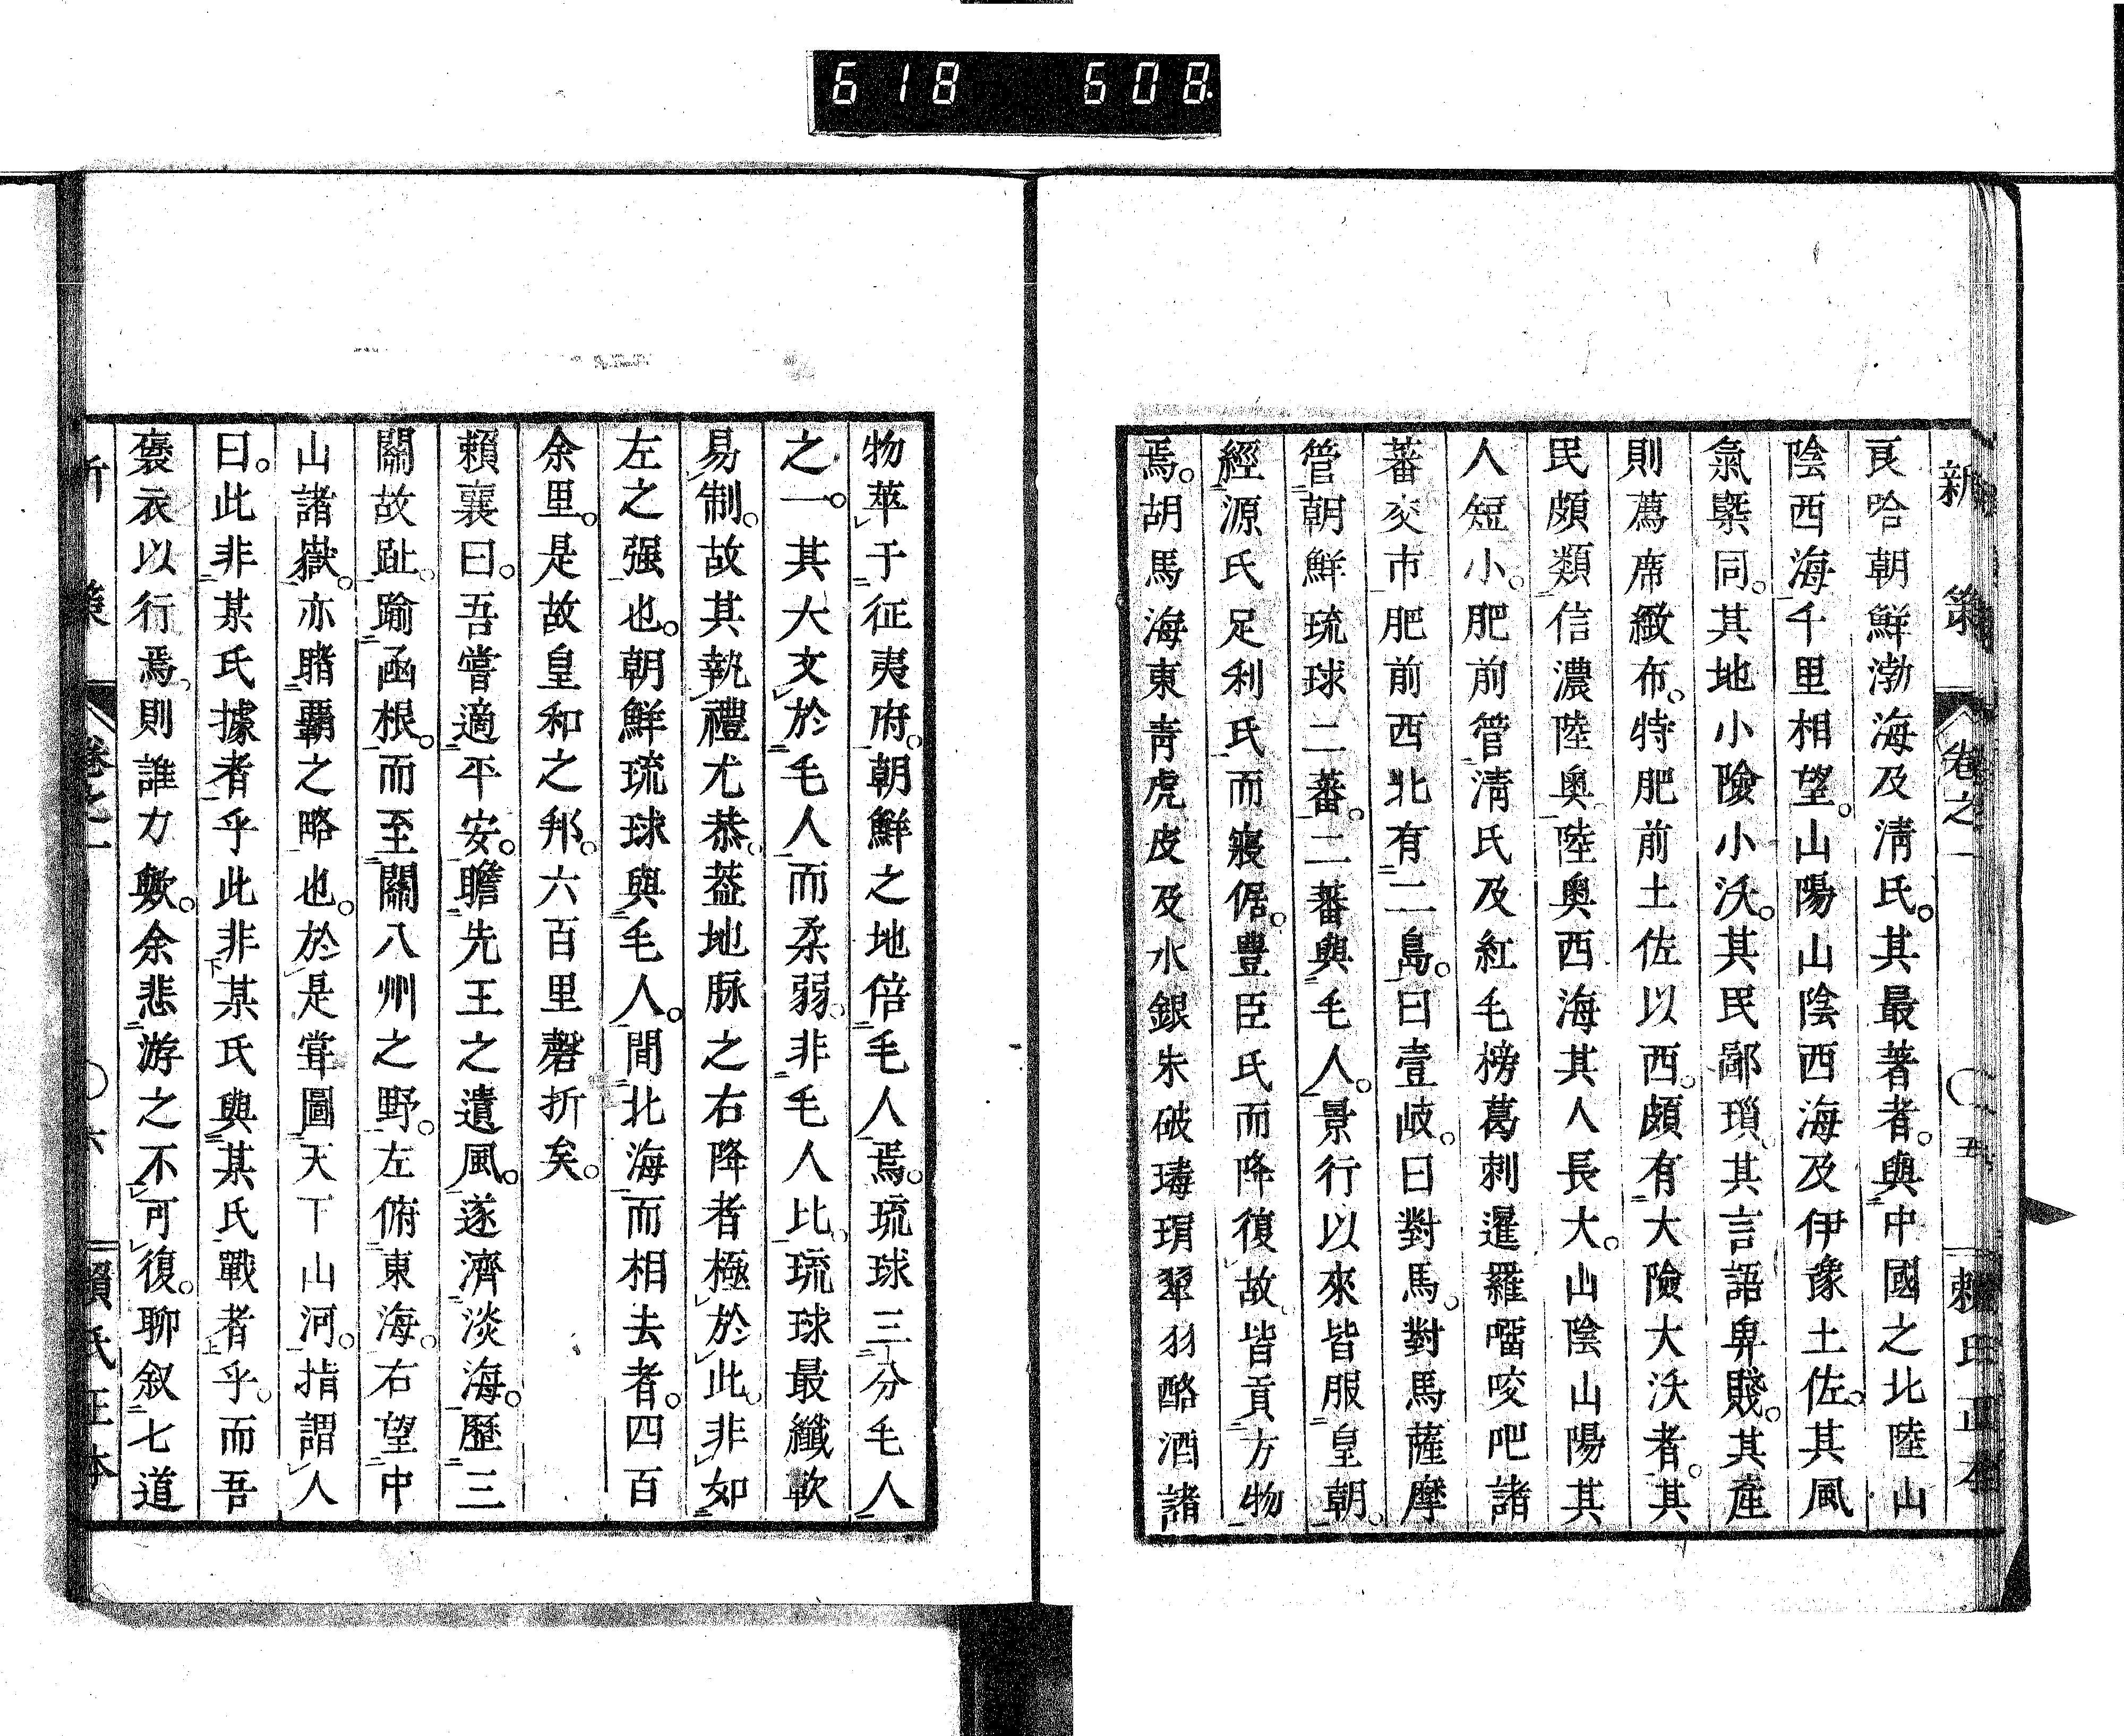 618 608
新策 卷之一 〇五 賴氏正本
哈朝鮮渤海及淸氏。其最著者。與中國之北陸山
陰西海千里相望。山陽山陰西海及伊豫土佐。其風
氣槩同。其地小險小沃。其民鄙瑣其言語鼻賤。其產
則蔿席緻布。特肥前土佐以西。頗有大險大沃者。其
民頗類信濃陸奧。陸奧西海其人長大。山陰山陽其
人短小。肥前管淸氏及紅毛榜葛剌暹羅㗩咬吧諸
蕃交市肥前西北有二島。曰壹岐。曰對馬。對馬薩摩
管朝鮮琉球二蕃。二蕃與毛人。景行以來皆服皇朝。
經源氏足利氏而寢倨。豐臣氏而降復故皆貢方物
焉。胡馬海東靑虎皮及水銀朱破瑇瑁翠羽酪酒諸
物萃于征夷府。朝鮮之地倍毛人焉。琉球三分毛人
之一。其大文於毛人而柔弱非毛人比琉球最纖軟
易制。故其執禮尤恭葢地脉之右降者極於此非如
左之强也。朝鮮琉球與毛人。間北海而相去者。四百
余里。是故皇和之邦。六百里磬折矣。
賴襄曰。吾嘗適平安。瞻先王之遺風。遂濟淡海。歷三
關故趾。踰函根。而至關八州之野。左俯東海。右望中
山諸嶽。亦睹覇之略也。於是甞圖天下山河。指謂人
曰。此非某氏據者乎此非某氏與某氏戰者乎。而吾
褒衣以行焉則誰力歟。余悲游之不可復。聊叙七道
新策 卷之一 〇六 賴氏正本